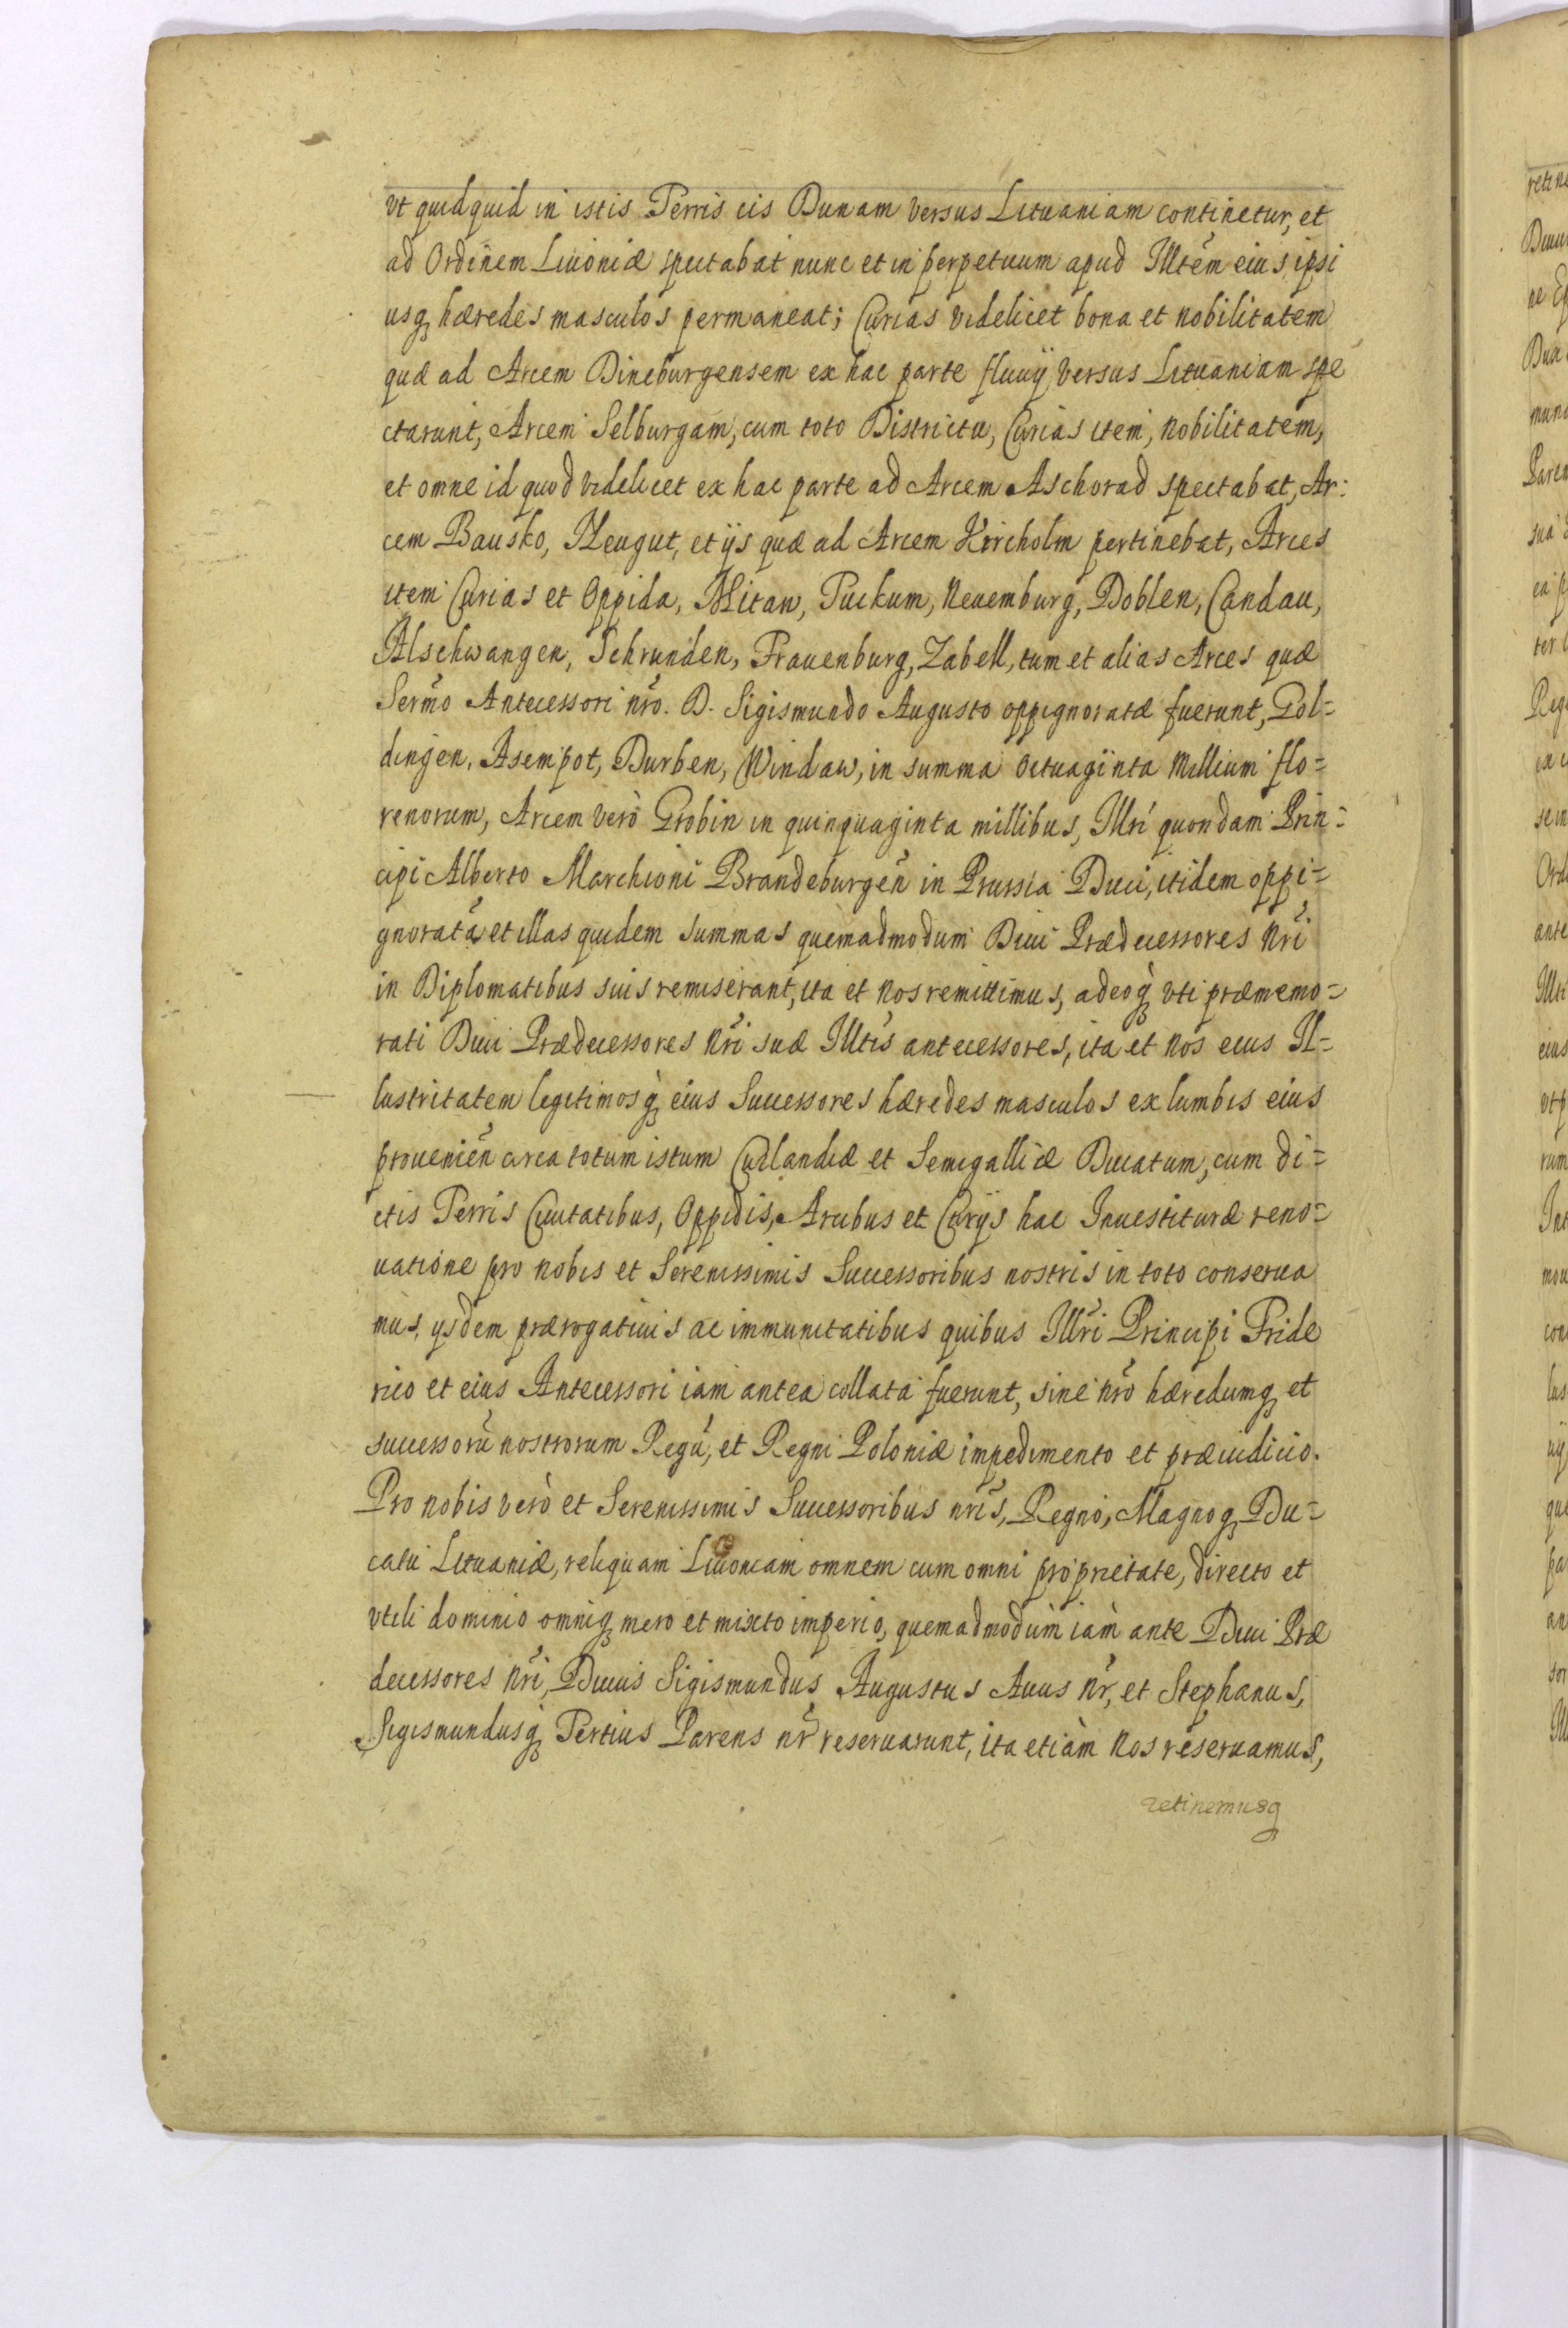 vt quidquid in istis Terris cis Dunam versus Lituaniam continetur, et
ad Ordinem Liuoniæ spectabat nunc et in perpetuum apud Illtem eius, ipsi
usq hæredes masculos permaneat; Curias videlicet bona et nobilitatem
quæ ad Arcem Dineburgensem ex hac parte fluuij versus Lituaniam spe
ctarunt, Arcem Selburgam, cum toto Districtu, Curias item, nobilitatem,
et omne id quod videlicet ex hac parte ad Arcem Aschorad spectabat, Ar:
cem Bausko, Neugut, et ijs quæ ad Arcem Kircholm pertinebat, Arces
item Curias et Oppida, Mitaw, Tuckum, Neuemburg, Doblen, Candau,
Alschwangen, Schrunden, Frauenburg, Zabell, tum et alias Arces quæ
Sermo Antecessori nro. D. Sigismundo Augusto oppignoratæ fuerunt, Gol=
dingen, Asempot, Durben, Windaw, in summa octuaginta Millium flo=
renorum, Arcem verò Grobin in quinquaginta millibus, Illri quondam Prin=
cipi Alberto Marchioni Brandeburgen in Prussia Duci, itidem oppi=
gnorata, et illas quidem summas quemadmodum Diui Prædecessores Nri
in Diplomatibus suis remiserant, ita et nos remittimus, adeoq vti præmemo=
rati Diui Prædecessores Nri suæ Illtis antecessores, ita et nos eius Il=
lustritatem legitimosq eius Successores hæredes masculos ex lumbis eius
prouenien circa totum istum Curlandiæ et Semigalliæ Ducatum, cum di=
ctis Terris Ciuitatibus, Oppidis, Arcibus et Curijs hac Inuestituræ reno=
uatione pro nobis et Serenissimis Successoribus nostris in toto conserua
mus, ijsdem prærogatiuis ac immunitatibus quibus Illri Principi Fride
rico et eius Antecessori iam antea collata fuerunt, sine nro hæredumq et
successorũ nostrorum Regũ, et Regni Poloniæ impedimento et præiudicio.
Pro nobis verò et Serenissimis Successoribus nris, Regno, Magnoq Du=
catu Lituaniæ, reliquam Liuoniam omnem cum omni proprietate, directo et
vtili dominio omniq mero et mixto imperio, quemadmodùm iàm ante Diui Præ
decessores Nri, Diuus Sigismundus Augustus Auus Nr, et Stephanus,
Sigismundusq Tertius Parens nr reseruarunt, ita etiàm Nos reseruamus,
retinemusq